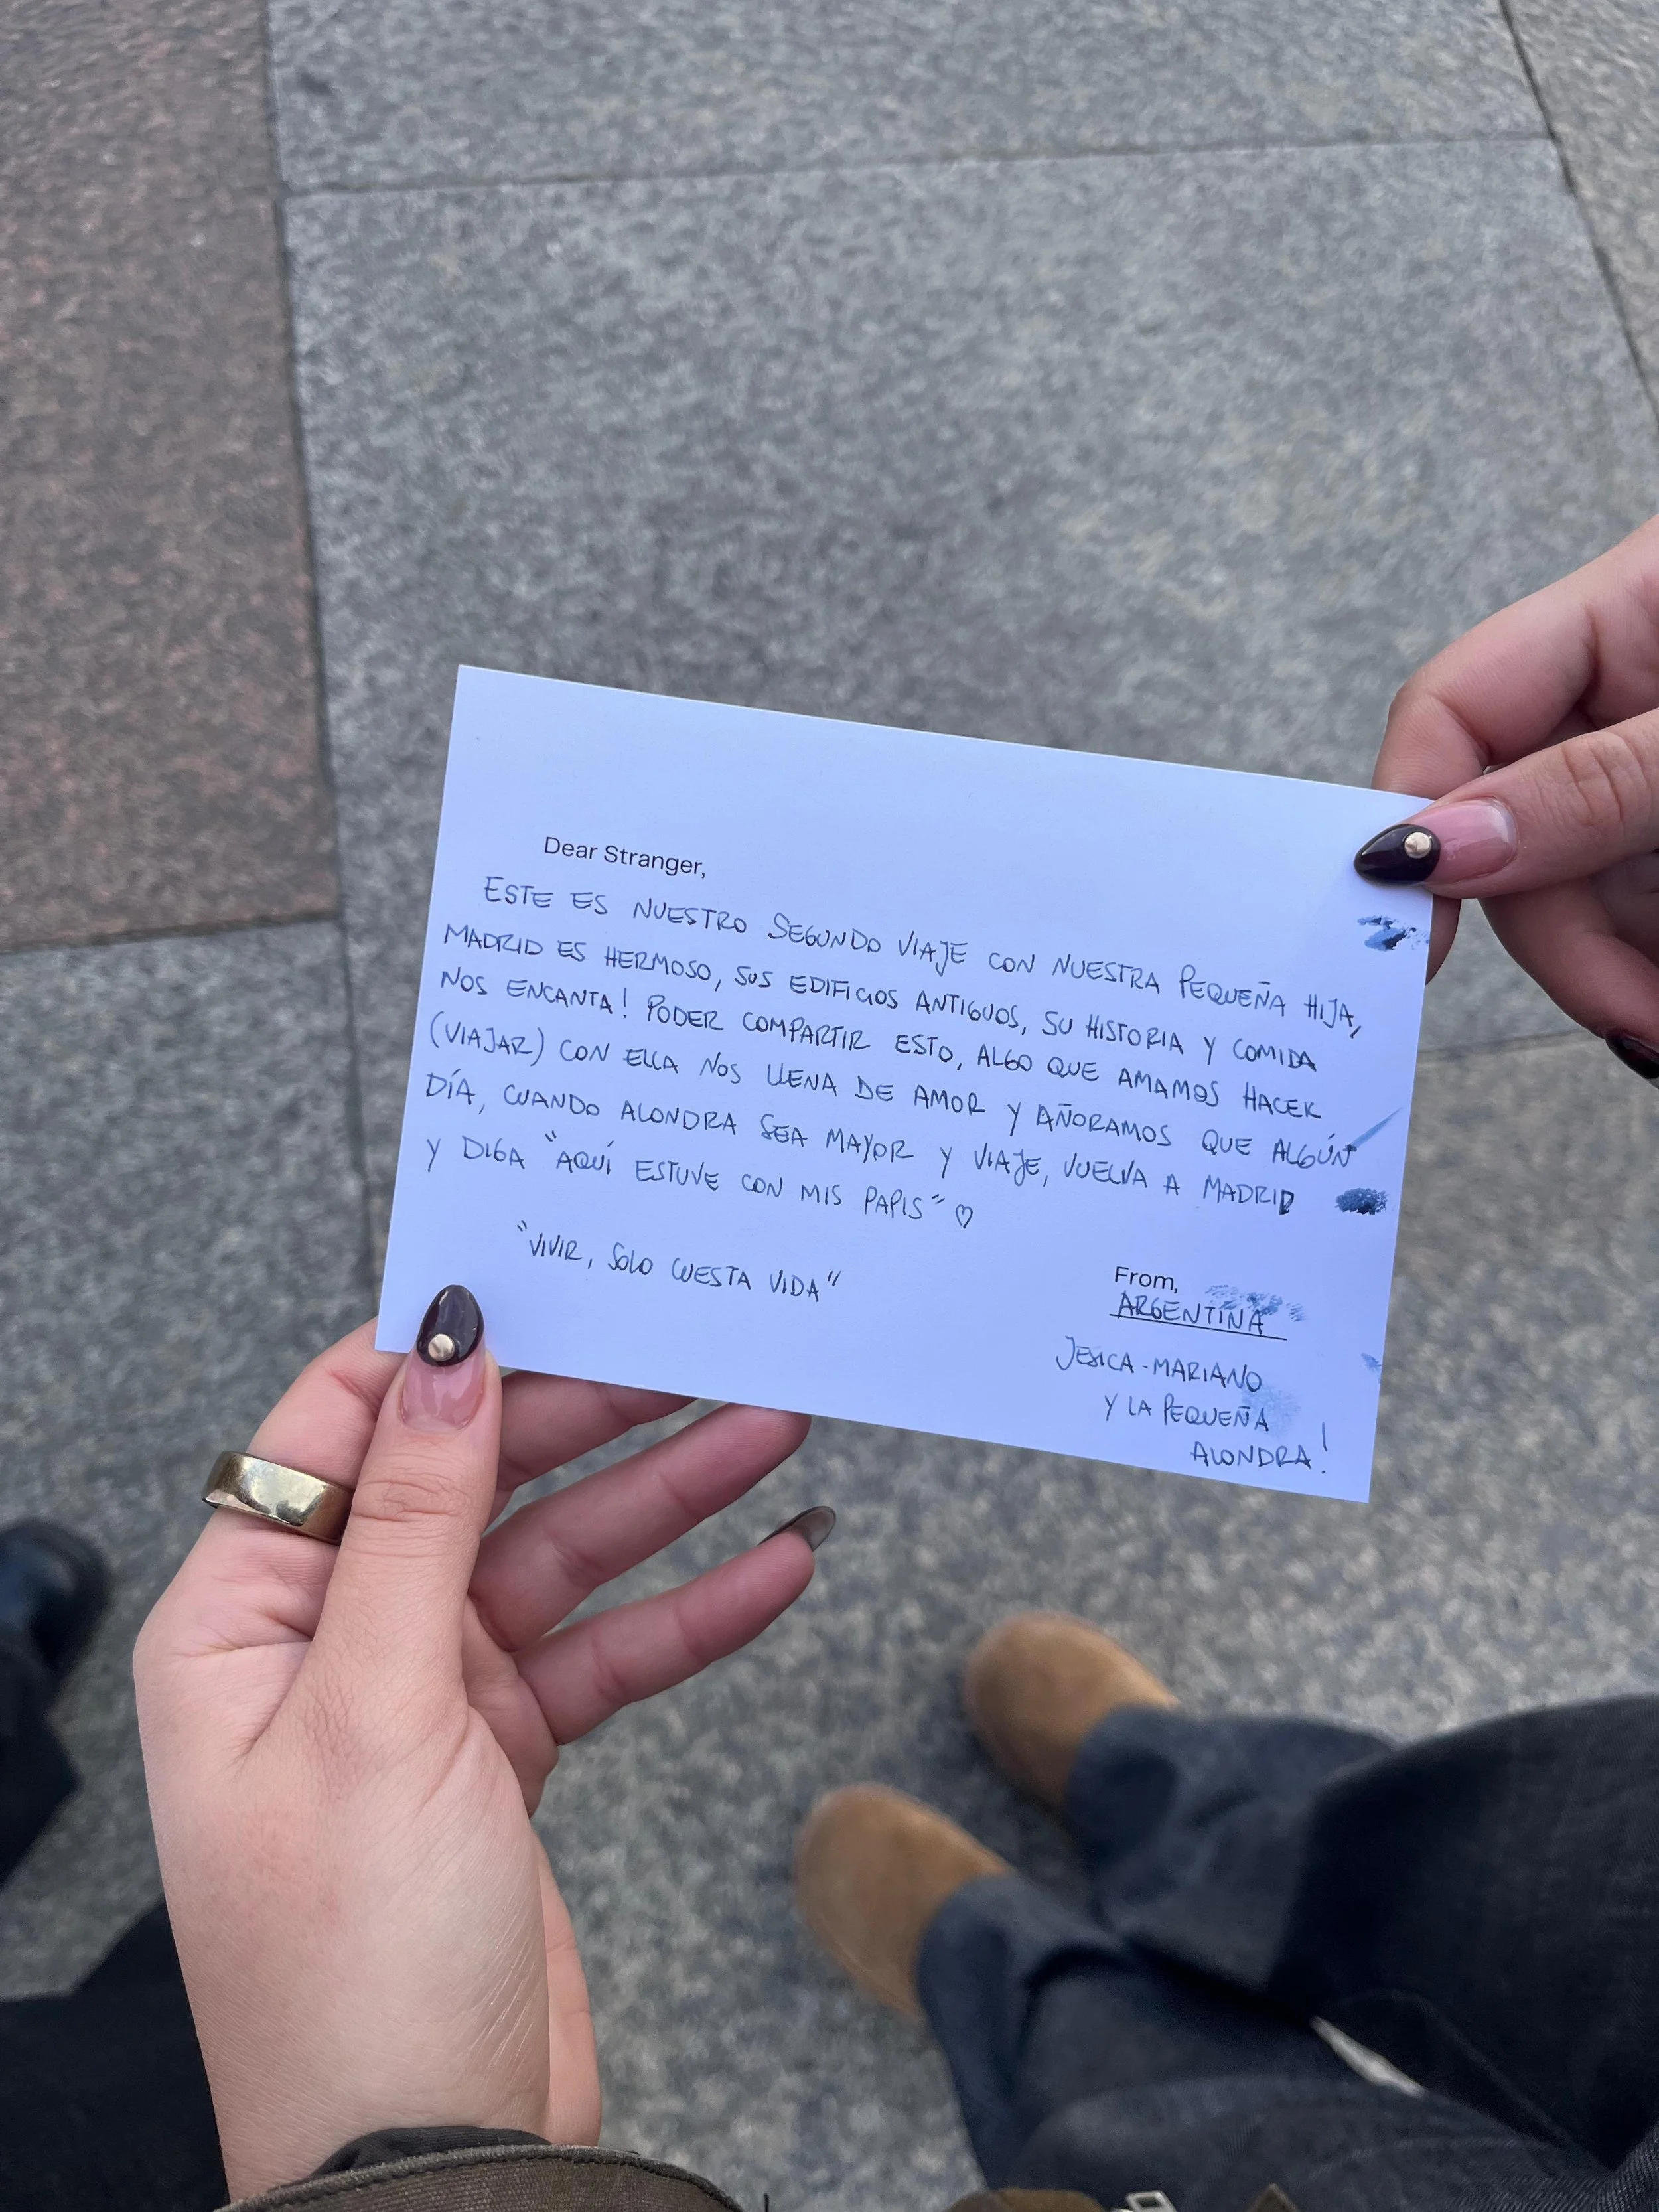 Dear Stranger,
ESTE ES NUESTRO SEGUNDO VIAJE CON NUESTRA PEQUEÑA HIJA,
MADRID ES HERMOSO, SUS EDIFICIOS ANTIGUOS, SU HISTORIA Y COMIDA
NOS ENCANTA! PODER COMPARTIR ESTO, ALGO QUE AMAMOS HACER
(VIAJAR) CON ELLA NOS LLENA DE AMOR Y AÑORAMOS QUE ALGÚN
DÍA, CUANDO ALONDRA SEA MAYOR Y VIAJE, VUELVA A MADRID
Y DIGA "AQUÍ ESTUVE CON MIS PAPIS" ♡
"VIVIR, SOLO CUESTA VIDA"
From,
ARGENTINA
JESICA-MARIANO
Y LA PEQUEÑA
ALONDRA!